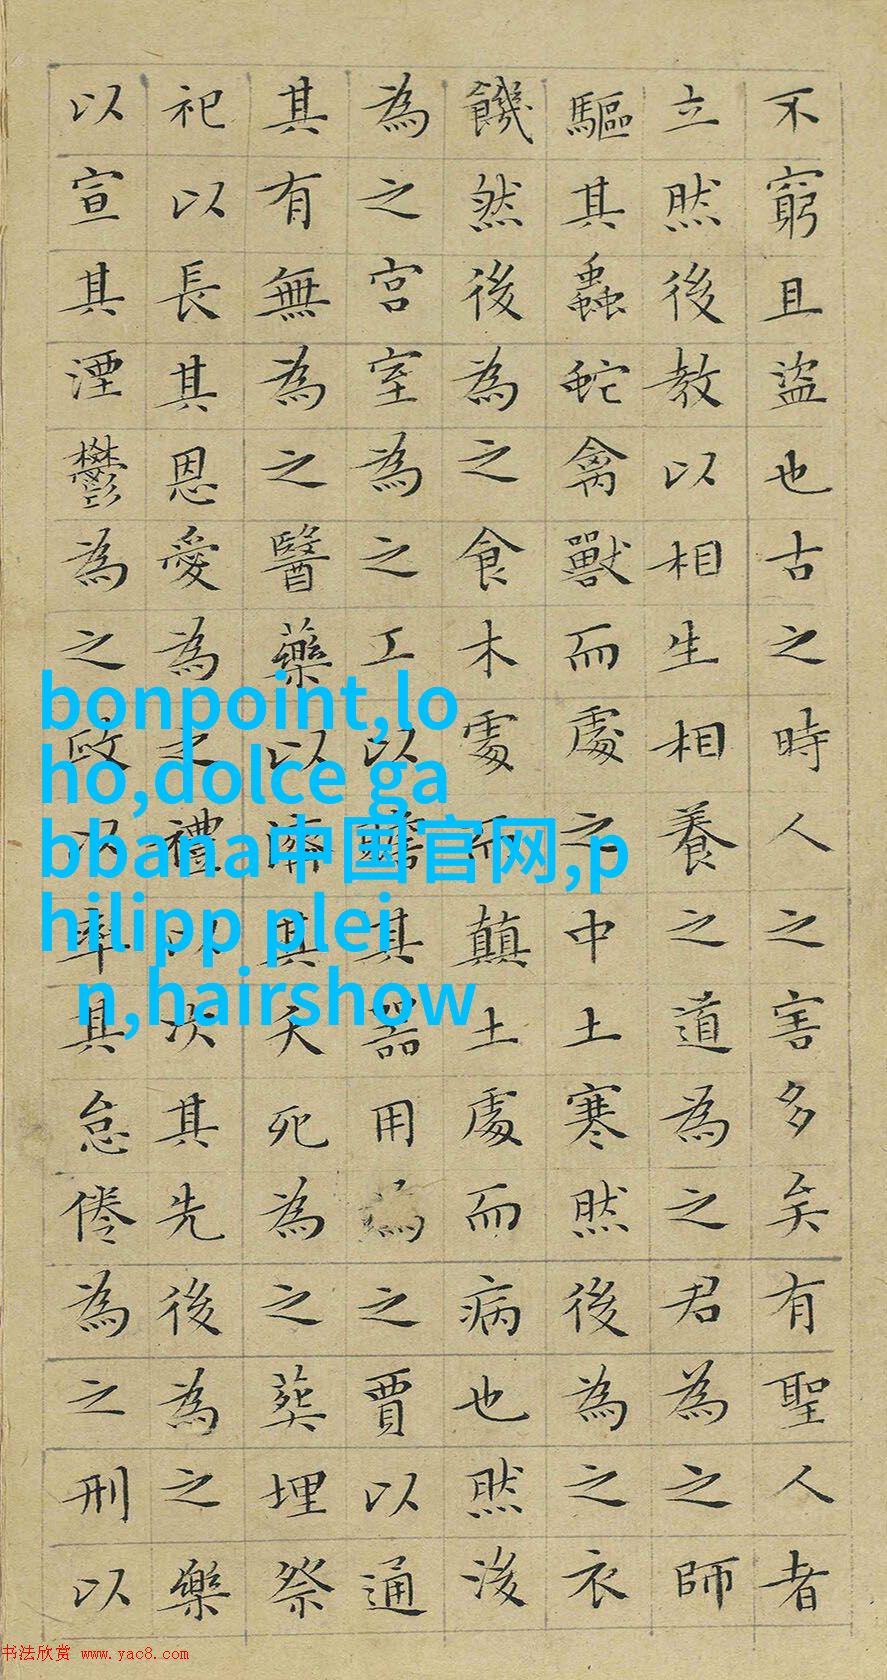 不窮且盜也古之時人之害多矣有聖人者
立然後教以相生相養之道為之君為之師
驅其蟲蛇禽獸而處之中土寒然後為之衣
饑然後為之食木處而顛土處而病也然後
為之宮室為之工以贍其器用為之賈以通
其有無為之醫藥以濟其夭死為之葬埋祭
祀以長其恩愛為之禮以次其先後為之樂
以宣其湮鬱為之政以率其怠倦為之刑以
bonpoint,lo
ho,dolce ga
bbana中国官网,p
hilipp plei
n,hairshow
书法欣赏 www.yac8.com